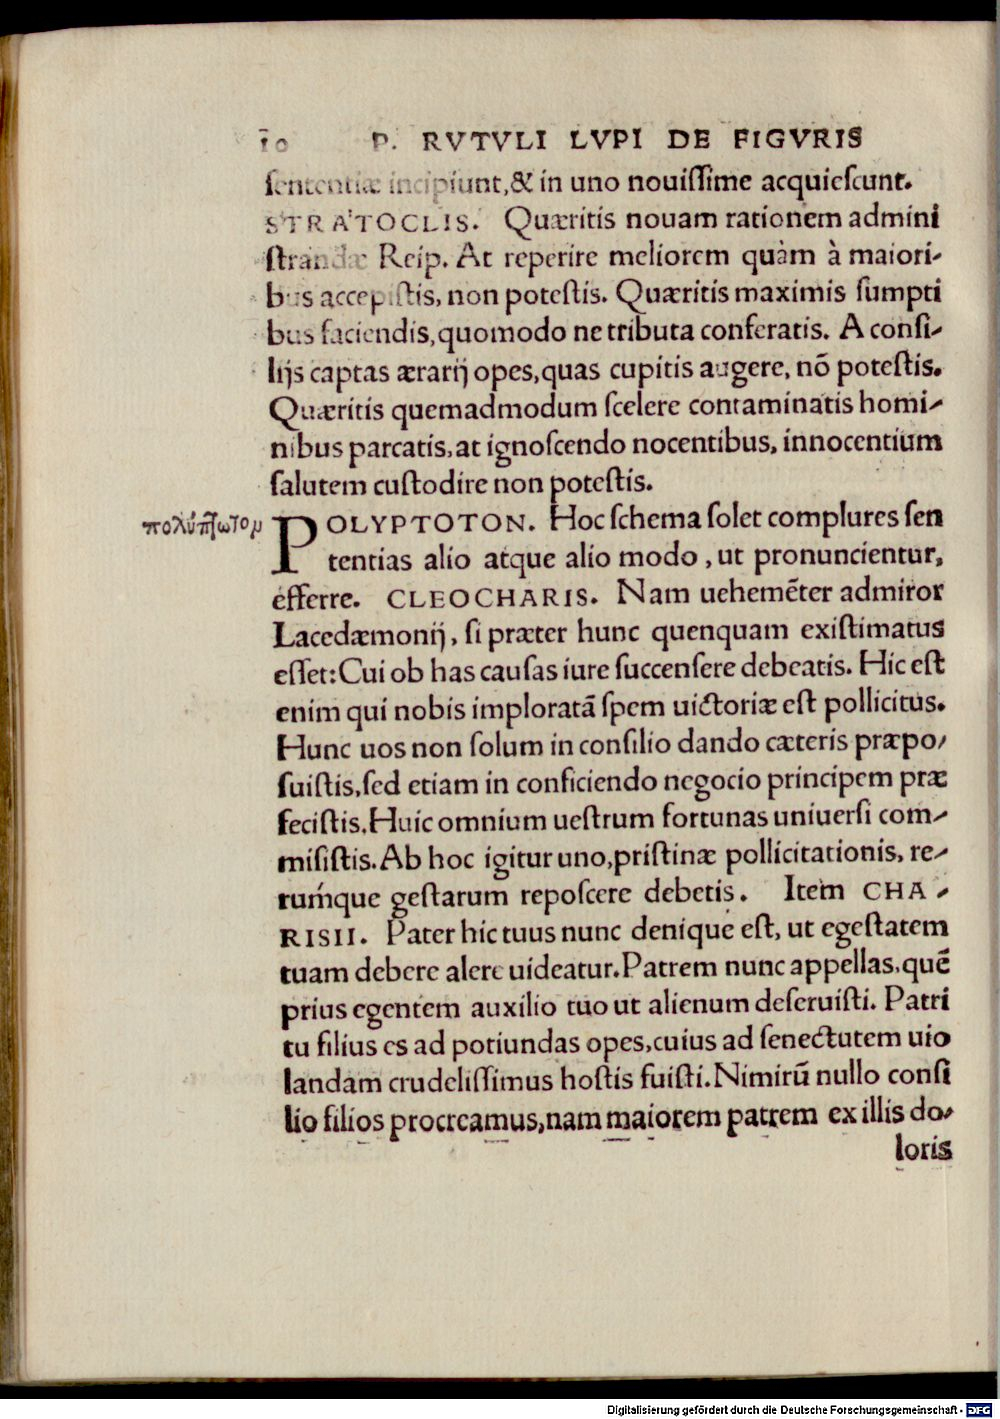 10 P. RVTVLI LVPI DE FIGVRIS
ſententiæ incipiunt, & in uno nouiſſime acquieſcunt.
STRATOCLIS. Quæritis nouam rationem admini
ſtrandæ Reip. At reperire meliorem quàm à maiori-
bus accepiſtis, non poteſtis. Quæritis maximis ſumpti
bus faciendis, quomodo ne tributa conferatis. A conſi-
lijs captas ærarij opes, quas cupitis augere, nō poteſtis.
Quæritis quemadmodum ſcelere contaminatis homi-
nibus parcatis, at ignoſcendo nocentibus, innocentium
ſalutem cuſtodire non poteſtis.
πολύπτωτομ
POLYPTOTON. Hoc ſchema ſolet complures ſen
tentias alio atque alio modo, ut pronuncientur,
efferre. CLEOCHARIS. Nam uehemēter admiror
Lacedæmonij, ſi præter hunc quenquam exiſtimatus
eſſet: Cui ob has cauſas iure ſuccenſere debeatis. Hic eſt
enim qui nobis imploratā ſpem uictoriæ eſt pollicitus.
Hunc uos non ſolum in conſilio dando cæteris præpo-
ſuiſtis, ſed etiam in conficiendo negocio principem præ
feciſtis. Huic omnium ueſtrum fortunas uniuerſi com-
miſiſtis. Ab hoc igitur uno, priſtinæ pollicitationis, re-
ruḿque geſtarum repoſcere debetis. Item CHA-
RISII. Pater hic tuus nunc denique eſt, ut egeſtatem
tuam debere alere uideatur. Patrem nunc appellas, quē
prius egentem auxilio tuo ut alienum deſeruiſti. Patri
tu filius es ad potiundas opes, cuius ad ſenectutem uio
landam crudeliſſimus hoſtis fuiſti. Nimirū nullo conſi
lio filios procreamus, nam maiorem patrem ex illis do-
loris
Digitalisierung gefördert durch die Deutsche Forschungsgemeinschaft - DFG